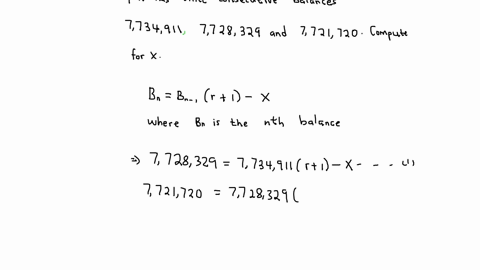 has three consecutive balances
7,734,911, 7,728,329 and 7,721,720. Compute
for x.
Bn = Bn-1 (r+1) - X
where Bn is the nth balance
⇒ 7,728,329 = 7,734,911(r+1) - X - - - (1)
7,721,720 = 7,728,329(